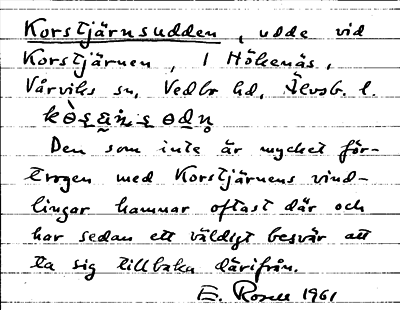 Korstjärnsudden, udde vid
Korstjärnen, i Hökenäs,
Vårviks sn, Vedbo hd, Älvsb. l.
Den som inte är mycket för-
trogen med Korstjärnens vind-
lingar hamnar oftast där och
har sedan ett väldigt besvär att
ta sig tillbaka därifrån.
E. Rosell 1961